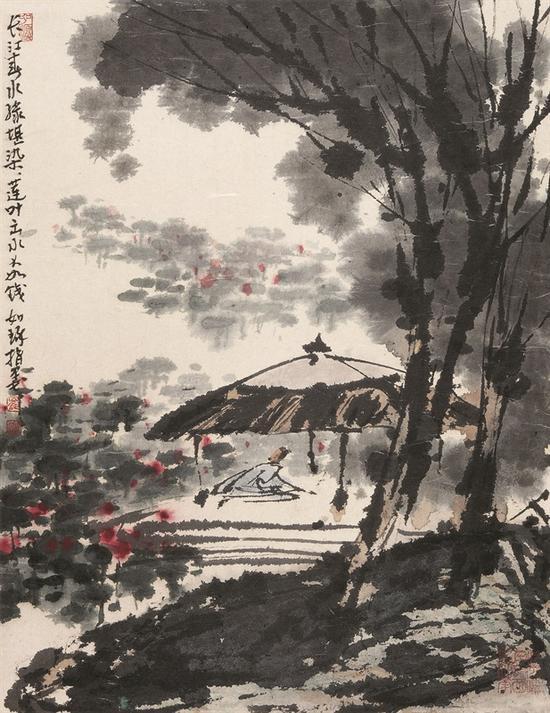 长江春水绿堪染、莲叶出水大如钱 如琢指墨